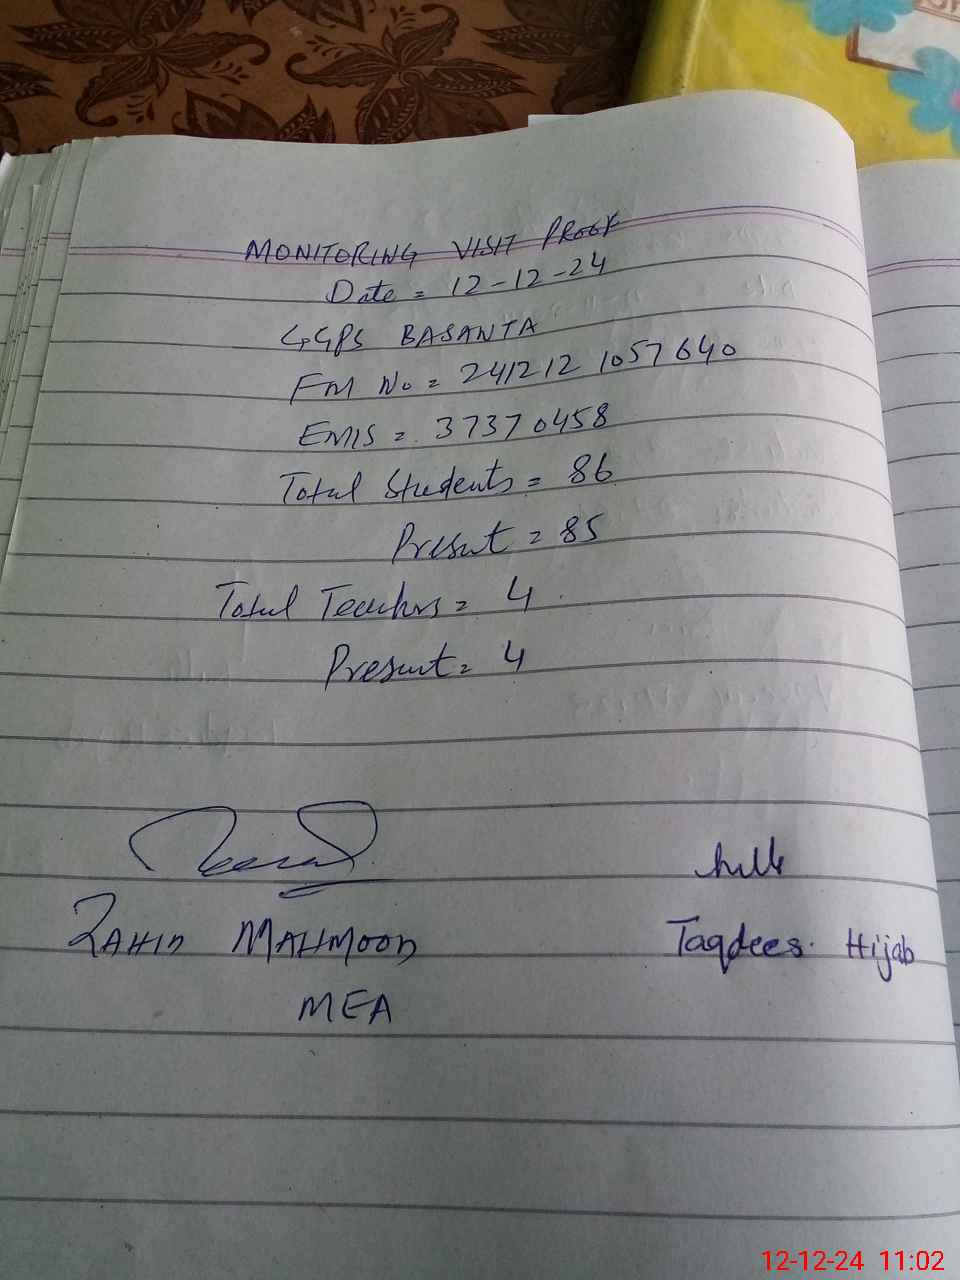 MONITORING VISIT PROOF
Date = 12-12-24
GGPS BASANTA
FM No = 241212 1057640
EMIS = 37370458
Total Students = 86
Present = 85
Total Teachers = 4
Present = 4
ZAHID MAHMOOD
Taqdees Hijab
MEA
12-12-24 11:02